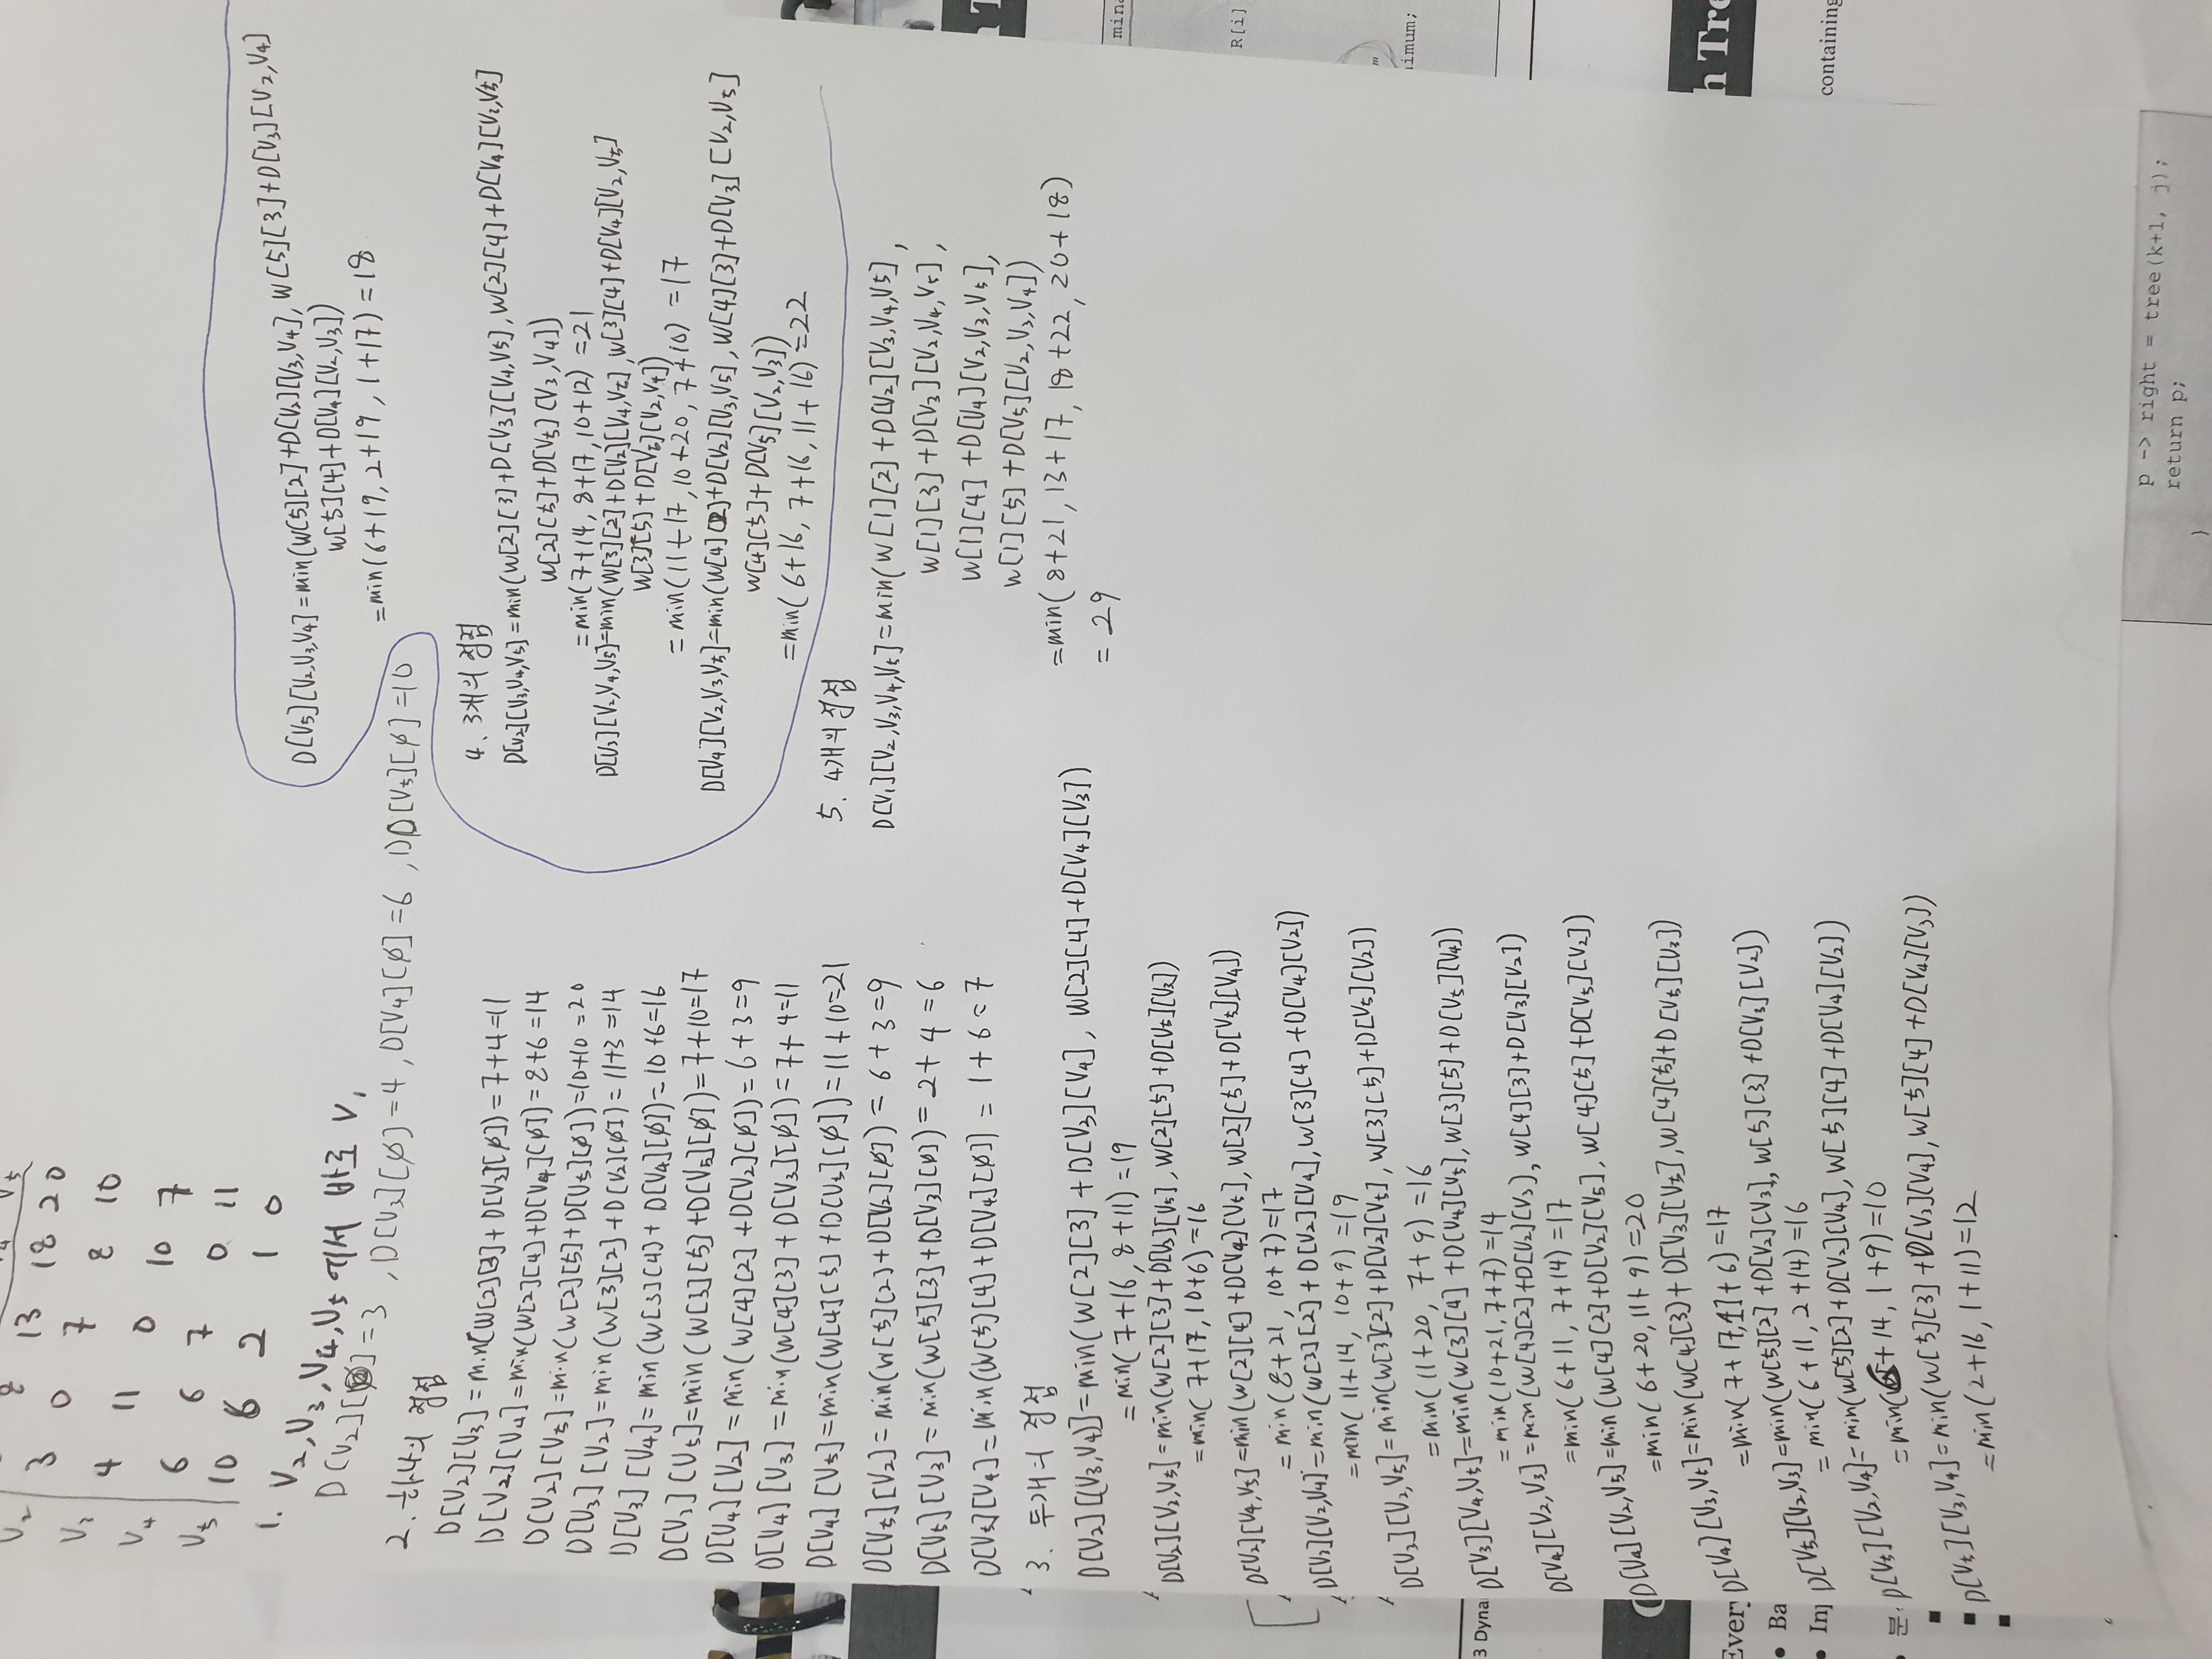 V₂ 8 13 18 20
V₃ 3 0 7 8 10
V₄ 4 11 0 10 7
V₅ 6 6 7 0 11
10 6 2 1 0
1. V₂,V₃,V₄,V₅ 에서 바로 V₁
D[V₂][∅]=3 , D[V₃][∅]=4 , D[V₄][∅]=6 , D[V₅][∅]=10
2. 하나의 정점
D[V₂][V₃]=min(W[2][3]+D[V₃][∅])=7+4=11
D[V₂][V₄]=min(W[2][4]+D[V₄][∅])=8+6=14
D[V₂][V₅]=min(W[2][5]+D[V₅][∅])=10+10=20
D[V₃][V₂]=min(W[3][2]+D[V₂][∅])=11+3=14
D[V₃][V₄]=min(W[3][4]+D[V₄][∅])=10+6=16
D[V₃][V₅]=min(W[3][5]+D[V₅][∅])=7+10=17
D[V₄][V₂]=min(W[4][2]+D[V₂][∅])=6+3=9
D[V₄][V₃]=min(W[4][3]+D[V₃][∅])=7+4=11
D[V₄][V₅]=min(W[4][5]+D[V₅][∅])=11+10=21
D[V₅][V₂]=min(W[5][2]+D[V₂][∅])=6+3=9
D[V₅][V₃]=min(W[5][3]+D[V₃][∅])=2+4=6
D[V₅][V₄]=min(W[5][4]+D[V₄][∅])=1+6=7
3. 두개의 정점
D[V₂][(V₃,V₄)]=min(W[2][3]+D[V₃][V₄], W[2][4]+D[V₄][V₃])
=min(7+16, 8+11)=19
D[V₂][V₃,V₅]=min(W[2][3]+D[V₃][V₅], W[2][5]+D[V₅][V₃])
=min(7+17, 10+6)=16
D[V₂][V₄,V₅]=min(W[2][4]+D[V₄][V₅], W[2][5]+D[V₅][V₄])
=min(8+21, 10+7)=17
D[V₃][V₂,V₄]=min(W[3][2]+D[V₂][V₄], W[3][4]+D[V₄][V₂])
=min(11+14, 10+9)=19
D[V₃][V₂,V₅]=min(W[3][2]+D[V₂][V₅], W[3][5]+D[V₅][V₂])
=min(11+20, 7+9)=16
D[V₃][V₄,V₅]=min(W[3][4]+D[V₄][V₅], W[3][5]+D[V₅][V₄])
=min(10+21, 7+7)=14
D[V₄][V₂,V₃]=min(W[4][2]+D[V₂][V₃], W[4][3]+D[V₃][V₂])
=min(6+11, 7+14)=17
D[V₄][V₂,V₅]=min(W[4][2]+D[V₂][V₅], W[4][5]+D[V₅][V₂])
=min(6+20, 11+9)=20
D[V₄][V₃,V₅]=min(W[4][3]+D[V₃][V₅], W[4][5]+D[V₅][V₃])
=min(7+17, 11+6)=17
D[V₅][V₂,V₃]=min(W[5][2]+D[V₂][V₃], W[5][3]+D[V₃][V₂])
=min(6+11, 2+14)=16
D[V₅][V₂,V₄]=min(W[5][2]+D[V₂][V₄], W[5][4]+D[V₄][V₂])
=min(6+14, 1+9)=10
D[V₅][V₃,V₄]=min(W[5][3]+D[V₃][V₄], W[5][4]+D[V₄][V₃])
=min(2+16, 1+11)=12
D[V₅][V₂,V₃,V₄]=min(W[5][2]+D[V₂][V₃,V₄], W[5][3]+D[V₃][V₂,V₄]
W[5][4]+D[V₄][V₂,V₃])
=min(6+19, 2+19, 1+17)=18
4. 3개의 정점
D[V₂][V₃,V₄,V₅]=min(W[2][3]+D[V₃][V₄,V₅], W[2][4]+D[V₄][V₃,V₅]
W[2][5]+D[V₅][V₃,V₄])
=min(7+14, 8+17, 10+12)=21
D[V₃][V₂,V₄,V₅]=min(W[3][2]+D[V₂][V₄,V₅], W[3][4]+D[V₄][V₂,V₅]
W[3][5]+D[V₅][V₂,V₄])
=min(11+17, 10+20, 7+10)=17
D[V₄][V₂,V₃,V₅]=min(W[4][2]+D[V₂][V₃,V₅], W[4][3]+D[V₃][V₂,V₅]
W[4][5]+D[V₅][V₂,V₃])
=min(6+16, 7+16, 11+16)=22
5. 4개의 정점
D[V₁][V₂,V₃,V₄,V₅]=min(W[1][2]+D[V₂][V₃,V₄,V₅],
W[1][3]+D[V₃][V₂,V₄,V₅],
W[1][4]+D[V₄][V₂,V₃,V₅],
W[1][5]+D[V₅][V₂,V₃,V₄])
=min(8+21, 13+17, 18+22, 20+18)
=29
3 Dyna
Every
• Ba
• Inp
문
mina
R[i]
m
imum;
h Tre
containing
p -> right = tree(k+1, j);
return p;
}